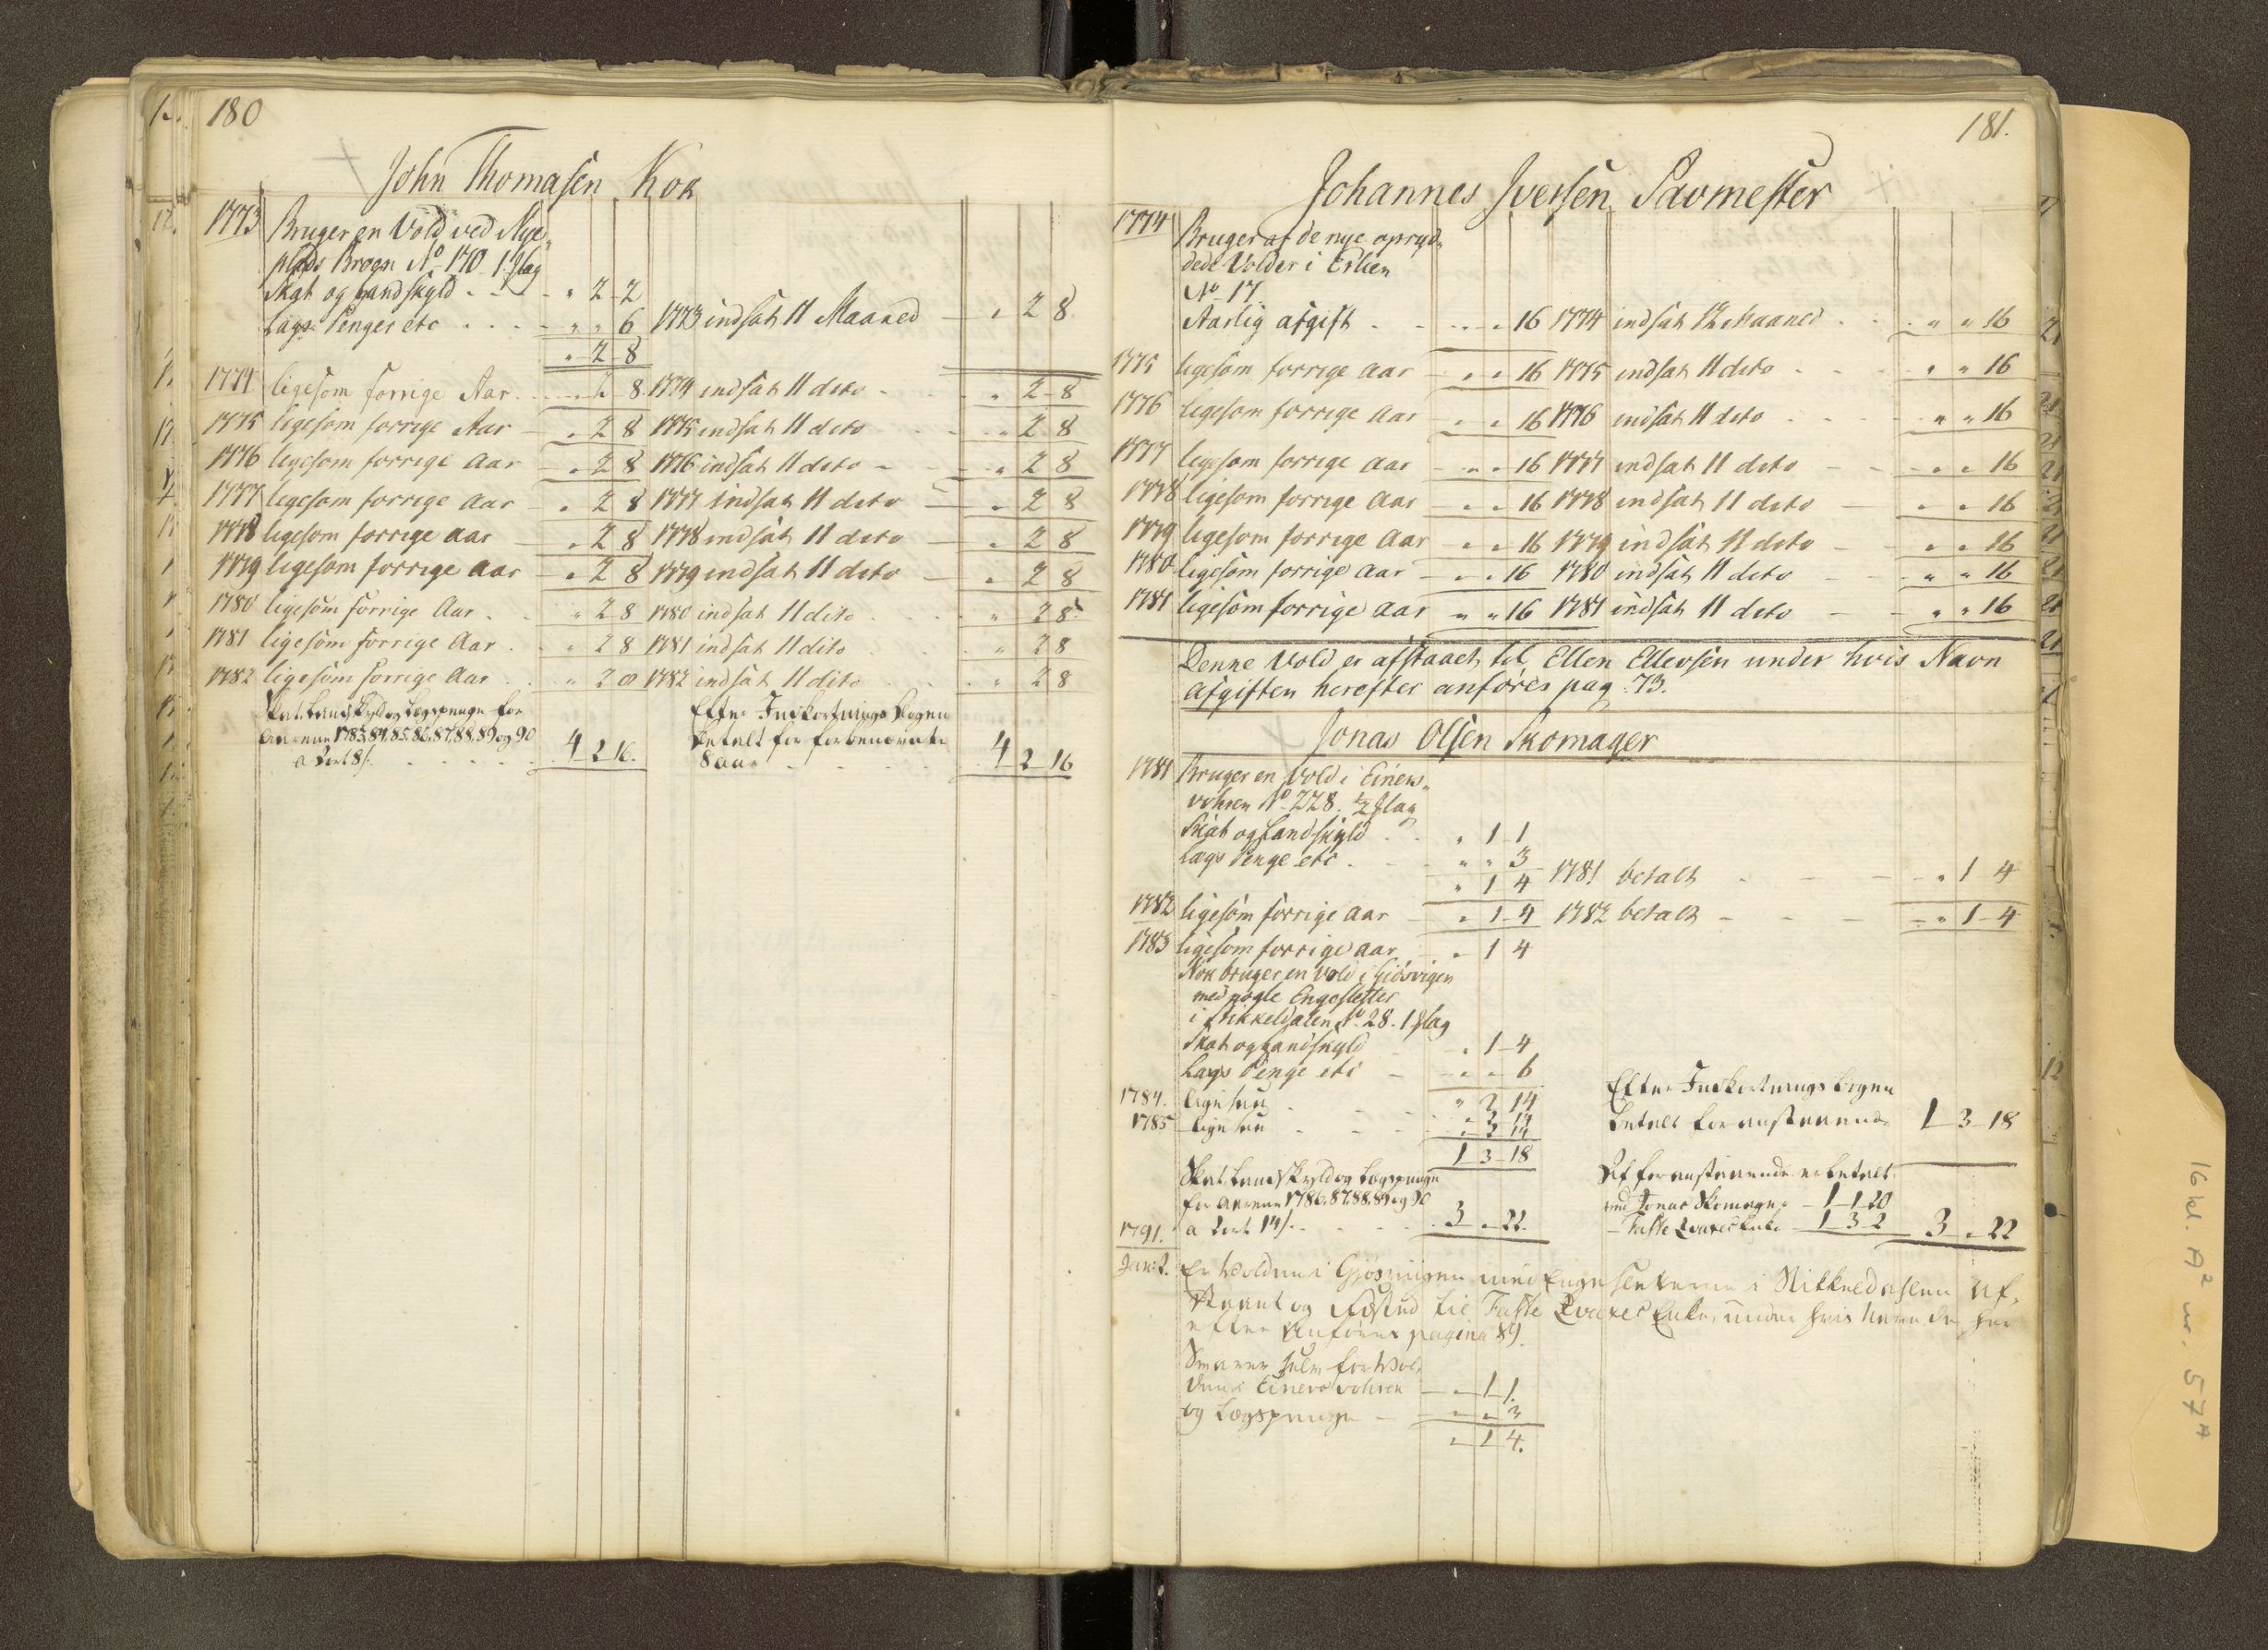 180
John Thomasen Kok
1773 Bruger en Vold ved Nye-
plads Brogn No. 170. 1 flag
Skat og Landskyld - - - " 2 2
Lags Penger etc . . . - " " 6 1773 indsat 11 Maaned - " 2 8
" 2 8
1774 ligesom forrige Aar. . . " 2 8 1774 indsat 11 dito - " 2 8
1775 ligesom forrige Aar - " 2 8 1775 indsat 11 dito - " 2 8
1776 ligesom forrige aar - " 2 8 1776 indsat 11 dito - " 2 8
1777 ligesom forrige aar - " 2 8 1777 indsat 11 dito - " 2 8
1778 ligesom forrige aar - " 2 8 1778 indsat 11 dito - " 2 8
1779 ligesom forrige aar - " 2 8 1779 indsat 11 dito - " 2 8
1780 ligesom forrige Aar . . " 2 8 1780 indsat 11 dito . . " 2 8
1781 ligesom forrige Aar . . " 2 8 1781 indsat 11 dito . . " 2 8
1782 ligesom forrige Aar . . " 2 8 1782 indsat 11 dito . . " 2 8
Skat, Landskyld og Lagspenge for
Aarene 1783, 84, 85, 86, 87, 88, 89 og 90
a 2 ort 8 s. . . . . 4 2 16.
Efter Indkortnings Bogen
betalt for forbenævnte
8 Aar - - - 4 2 16
181.
Johannes Iversen Savmester
1774 Bruger af de nye opryd-
dede Volder i Erlien
No. 17.
Aarlig afgift . . . " " 16 1774 indsat 12 Maaned . . " " 16
1775 ligesom forrige aar - " " 16 1775 indsat 11 dito . . " " 16
1776 ligesom forrige aar - " " 16 1776 indsat 11 dito . . " " 16
1777 ligesom forrige aar - " " 16 1777 indsat 11 dito - " " 16
1778 ligesom forrige aar - " " 16 1778 indsat 11 dito - " " 16
1779 ligesom forrige aar - " " 16 1779 indsat 11 dito - " " 16
1780 ligesom forrige aar - " " 16 1780 indsat 11 dito - " " 16
1781 ligesom forrige aar " " 16 1781 indsat 11 dito - " " 16
Denne Vold er afstaaet til Ellen Ellevsen under hvis Navn
afgiften herefter anføres pag. 73.
Jonas Olsen Skomager
1781 Bruger en Vold i Einers-
vohren No. 228. 1/2 flag
Skat og Landskyld . . " 1 1
Lags Penge etc . . " " 3
" 1 4 1781 betalt - - - " 1 4
1782 ligesom forrige aar " 1 4 1782 betalt - - - " 1 4
1783 ligesom forrige aar " 1 4
Nok bruger en Vold i Giosvigen
med nogle Engesletter
i Stikkeldalen No. 28. 1 flag
Skat og Landskyld " 1 4
Lags Penge etc - " " 6
" 2 14
1784. ligesaa - - - " 2 14
1785 ligesaa - - - " 2 14
1 3 18
Efter Indkortnings Bogen
betalt for anstaaende 1 3 18
Skat, Landskyld og Lagspenge
for Aarene 1786, 87, 88, 89 og 90
a 2 ort 14 s. . . . 3 " 22.
Af foranstaaende er betalt
ved Jonas Skomager - 1 1 20
- Enke 1 3 2 3 " 22
1791.
Jan: 2. Er Volden i Gjosvigen med Engesletterne i Stikkeldahlen af-
staaet og til Enke, under hvis Navn de her
efter anføres pagina 89.
Svarer selv for Vol-
den i Einers vohren - " 1 1.
og Lagspenge - " " 3
" 1 4.
16 kl. A2 nr. 57A